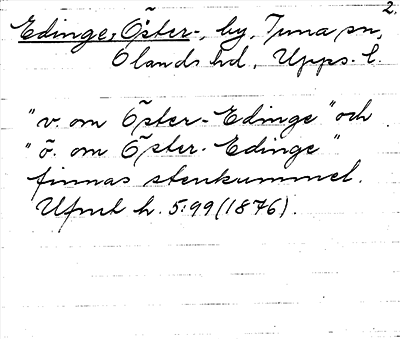 2.
Edinge, Öster-, by, Tuna sn,
Olands hd, Upps. l.
"v. om Öster-Edinge" och
"ö. om Öster-Edinge"
finnas stenkummel.
Ufmt h. 5:99 (1876).